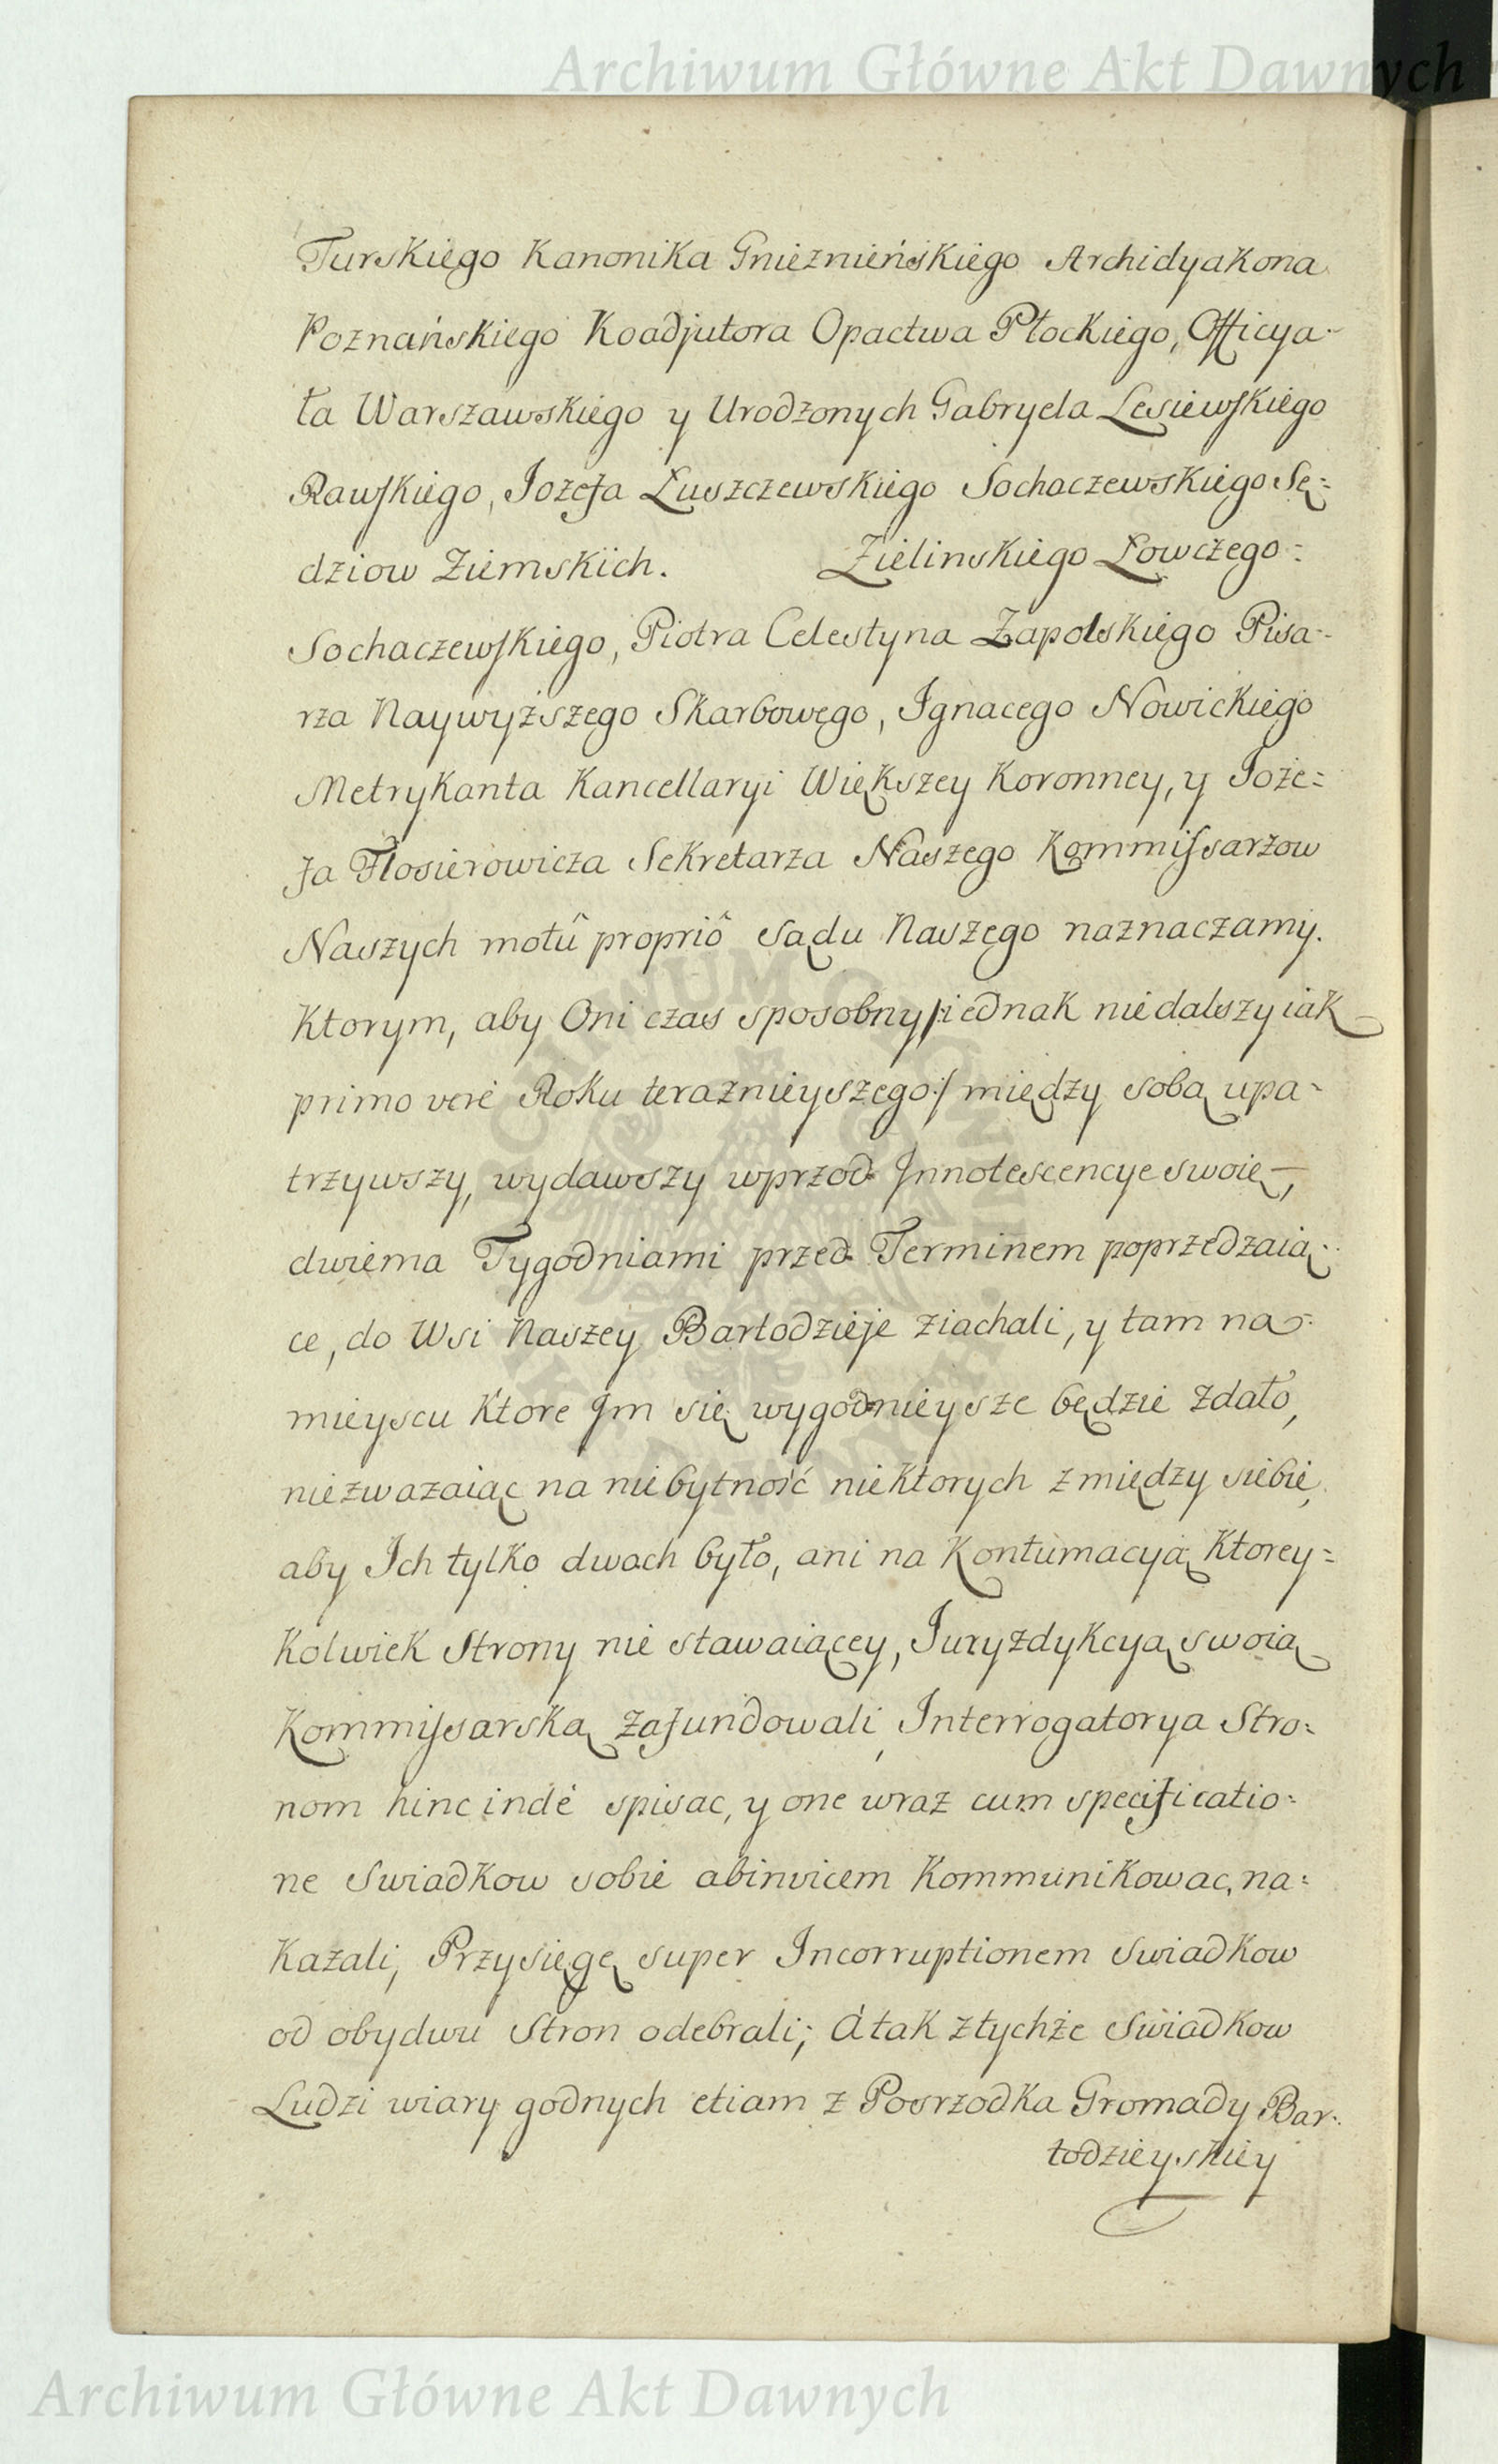 Archiwum Główne Akt Dawnych
Turskiego Kanonika Gnieznieńskiego Archidyakona
Poznańskiego Koadjutora Opactwa Płockiego, Officya-
ła Warszawskiego y Urodzonych Gabryela Lesiewskiego
Rawskiego, Jozefa Łuszczewskiego Sochaczewskiego Sę=
dziow Ziemskich. Zielinskiego Łowczego=
Sochaczewskiego, Piotra Celestyna Zapolskiego Pisa-
rza Naywyższego Skarbowego, Ignacego Nowickiego
Metrykanta Kancellaryi Większey Koronney, y Joże=
fa Flosierowicza Sekretarza Naszego Kommissarzow
Naszych motû propriô Sądu Naszego naznaczamy.
Ktorym, aby Oni czas sposobny /:iednak niedalszy iak
primo vere Roku teraznieyszego:/ między sobą upa-
trzywszy, wydawszy wprzod Innotescencye swoie,
dwiema Tygodniami przed Terminem poprzedzaią-
ce, do Wsi Naszey Bartodzieje ziachali, y tam na
mieyscu Ktore Jm się wygodnieysze będzie zdało,
niezwazaiąc na niebytność niektorych zmiędzy siebie,
aby Ich tylko dwoch było, ani na Kontumacyą Ktorey=
kolwiek Strony nie stawaiącey, Juryzdykcyą swoią
Kommissarską zafundowali, Interrogatorya Stro=
nom hinc inde spisac, y one wraz cum specificatio=
ne Swiadkow sobie abinvicem Kommunikowac, na=
kazali, Przysięgę super Incorruptionem Swiadkow
od obydwu Stron odebrali; A tak ztychże Swiadkow
Ludzi wiary godnych etiam z Posrzodka Gromady Bar-
todzieyskiey
Archiwum Główne Akt Dawnych